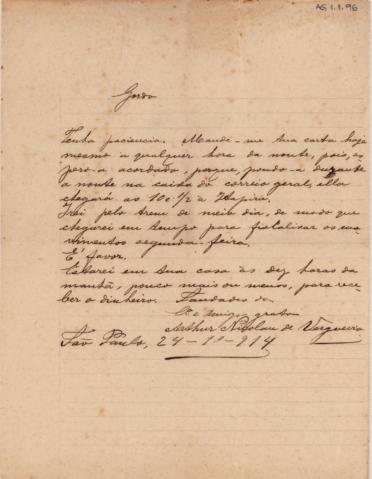 AG 1.1.96
Gordo
Tenha paciencia. Mande-me tua carta hoje
mesmo a qualquer hora da noute, pois, es-
pero-a acordado, porque, pondo-a durante
a noute na caixa do correio geral, ella
chegará as 10 e 1/2 a Itapira.
Irei pelo trem de meio dia, de modo que
chegarei em tempo para fiscalisar os
segunda-feira.
É favor.
Estarei em tua casa às dez horas da
manhã, pouco mais ou menos, para rece-
ber o dinheiro. Saudades do
amigo grato
Arthur Nicolau de Vergueiro
São Paulo, 24-11-914